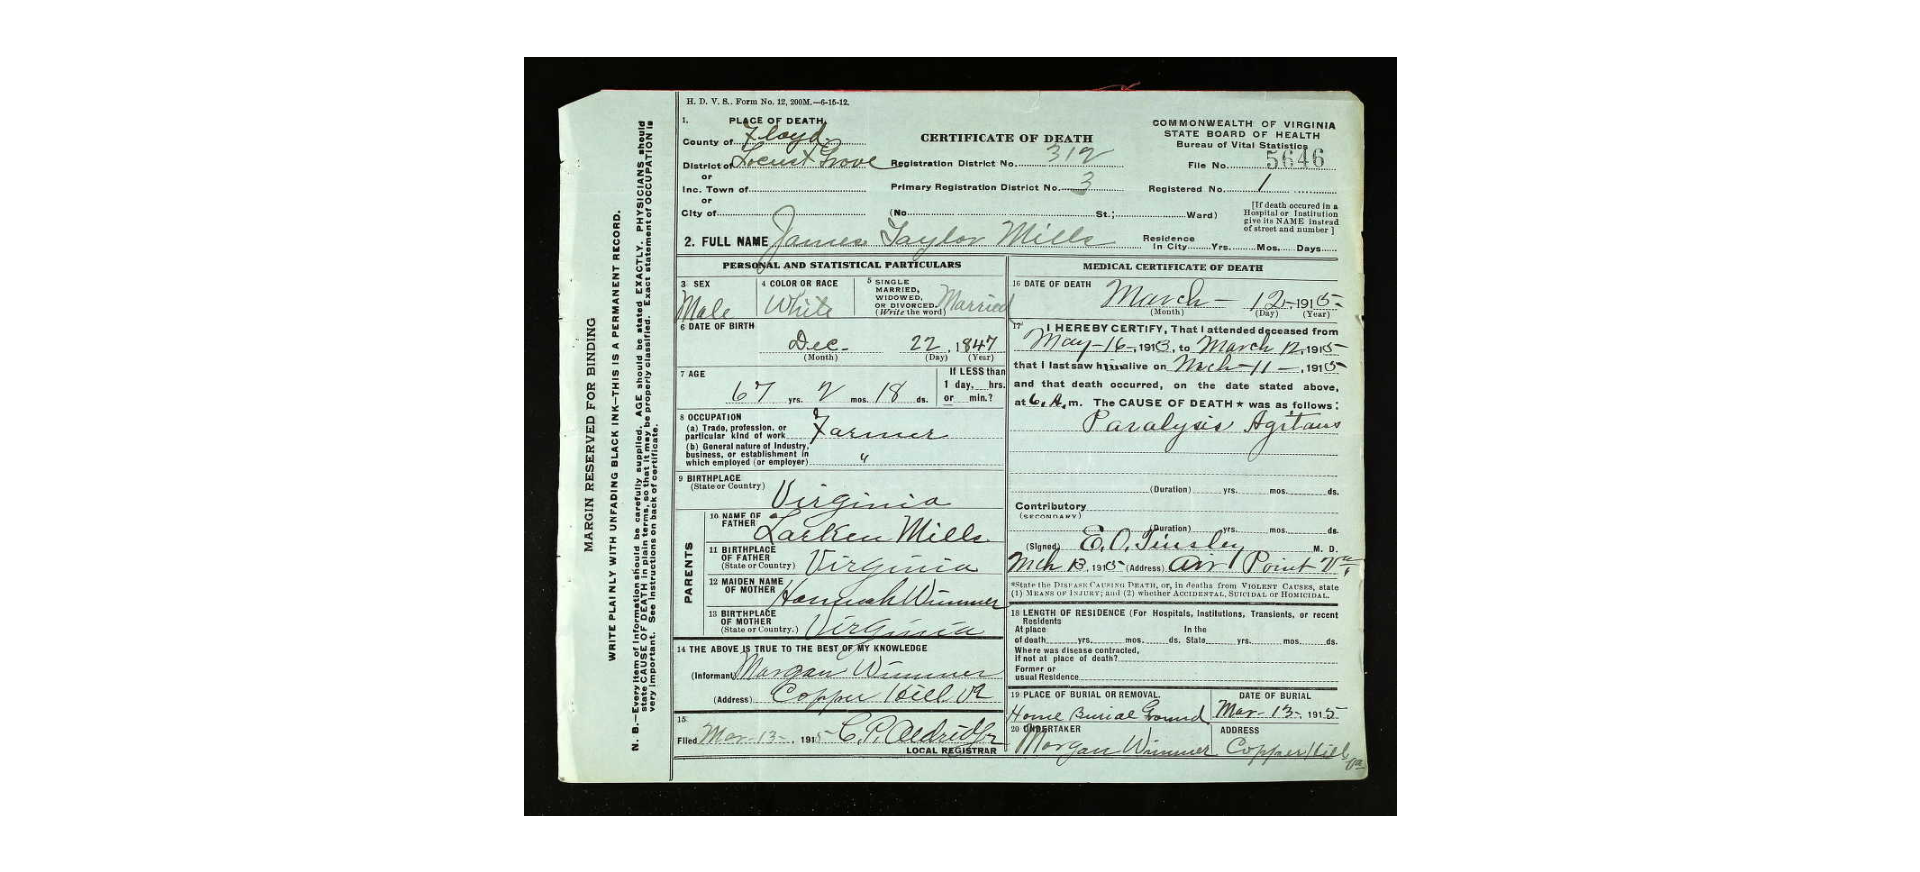 H. D. V. S., Form No. 12, 200M.—6-15-12.
1. PLACE OF DEATH
County of Floyd
District of Locust Grove
or
Inc. Town of
or
City of
CERTIFICATE OF DEATH
Registration District No. 312
Primary Registration District No. 3
(No. St.; Ward)
COMMONWEALTH OF VIRGINIA
STATE BOARD OF HEALTH
Bureau of Vital Statistics
File No. 5646
Registered No. 1
[If death occured in a
Hospital or Institution
give its NAME instead
of street and number]
2. FULL NAME James Taylor Mills
Residence
In City Yrs. Mos. Days
PERSONAL AND STATISTICAL PARTICULARS
3 SEX
Male
4 COLOR OR RACE
White
5 SINGLE
MARRIED,
WIDOWED,
OR DIVORCED.
(Write the word) Married
6 DATE OF BIRTH
Dec. 22, 1847
(Month) (Day) (Year)
7 AGE
67 yrs. 2 mos. 18 ds.
If LESS than
1 day, hrs.
or min.?
8 OCCUPATION
(a) Trade, profession, or
particular kind of work Farmer
(b) General nature of Industry,
business, or establishment in
which employed (or employer) "
9 BIRTHPLACE
(State or Country) Virginia
PARENTS
10 NAME OF
FATHER Larken Mills
11 BIRTHPLACE
OF FATHER
(State or Country) Virginia
12 MAIDEN NAME
OF MOTHER Hannah Wimmer
13 BIRTHPLACE
OF MOTHER
(State or Country.) Virginia
14 THE ABOVE IS TRUE TO THE BEST OF MY KNOWLEDGE
(Informant) Morgan Wimmer
(Address) Copper Hill Va
15.
Filed Mar-13-, 1915 C. P. Aldridge
LOCAL REGISTRAR
MEDICAL CERTIFICATE OF DEATH
16 DATE OF DEATH
March - 12, 1915
(Month) (Day) (Year)
17 I HEREBY CERTIFY, That I attended deceased from
May-16-, 1913, to March 12, 1915
that I last saw him alive on Mch-11-, 1915
and that death occurred, on the date stated above,
at 6. A. m. The CAUSE OF DEATH ★ was as follows:
Paralysis Agitans
(Duration) yrs. mos. ds.
Contributory
(SECONDARY)
(Duration) yrs. mos. ds.
(Signed) E. O. Tinsley M. D.
Mch 13, 1915 (Address) Air Point Va.
*State the DISEASE CAUSING DEATH, or, in deaths from VIOLENT CAUSES, state
(1) MEANS OF INJURY; and (2) whether ACCIDENTAL, SUICIDAL or HOMICIDAL.
18 LENGTH OF RESIDENCE (For Hospitals, Institutions, Transients, or recent
Residents
At place In the
of death yrs. mos. ds. State yrs. mos. ds.
Where was disease contracted,
if not at place of death?
Former or
usual Residence
19 PLACE OF BURIAL OR REMOVAL.
Home Burial Ground
DATE OF BURIAL
Mar-13-, 1915
20 UNDERTAKER
Morgan Wimmer
ADDRESS
Copper Hill
Va
MARGIN RESERVED FOR BINDING
WRITE PLAINLY WITH UNFADING BLACK INK—THIS IS A PERMANENT RECORD.
N. B.—Every item of information should be carefully supplied. AGE should be stated EXACTLY. PHYSICIANS should
state CAUSE OF DEATH in plain terms, so that it may be properly classified. Exact statement of OCCUPATION is
very important. See instructions on back of certificate.